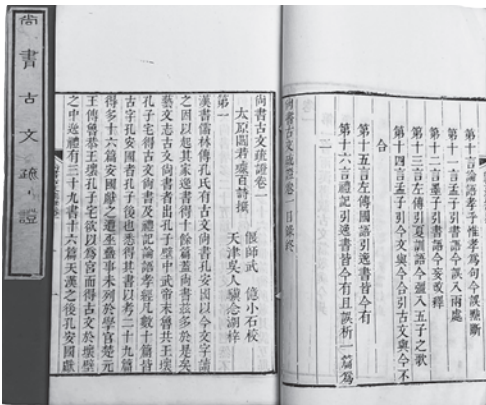 尚書古文疏證
第十言論語孝乎惟孝為句今誤點
第十一言孟子引書語今誤入兩處
第十二言墨子引書語今妄改釋
第十三言左傳引夏訓語今彊入五子之歌
第十四言孟子引今文與今合引古文與今不
合
第十五言左傳國語引逸書皆今有
第十六言禮記引逸書皆今有且誤析一篇為
二
尚書古文疏證卷一目錄終
尚書古文疏證卷一
太原閻若璩百詩撰
偃師武億小石校
天津吳人驥念湖梓
第一
漢書儒林傳孔氏有古文尚書孔安國以今文字讀
之因以起其家逸書得十餘篇蓋尚書茲多於是矣
藝文志古文尚書者出孔子壁中武帝末魯共王壞
孔子宅得古文尚書及禮記論語孝經凡數十篇皆
古字孔安國者孔子後也悉得其書以考二十九篇
得多十六篇安國獻之遭巫蠱事未列於學官楚元
王傳魯恭王壞孔子宅欲以為宮而得古文於壞壁
之中逸禮有三十九書十六篇天漢之後孔安國獻